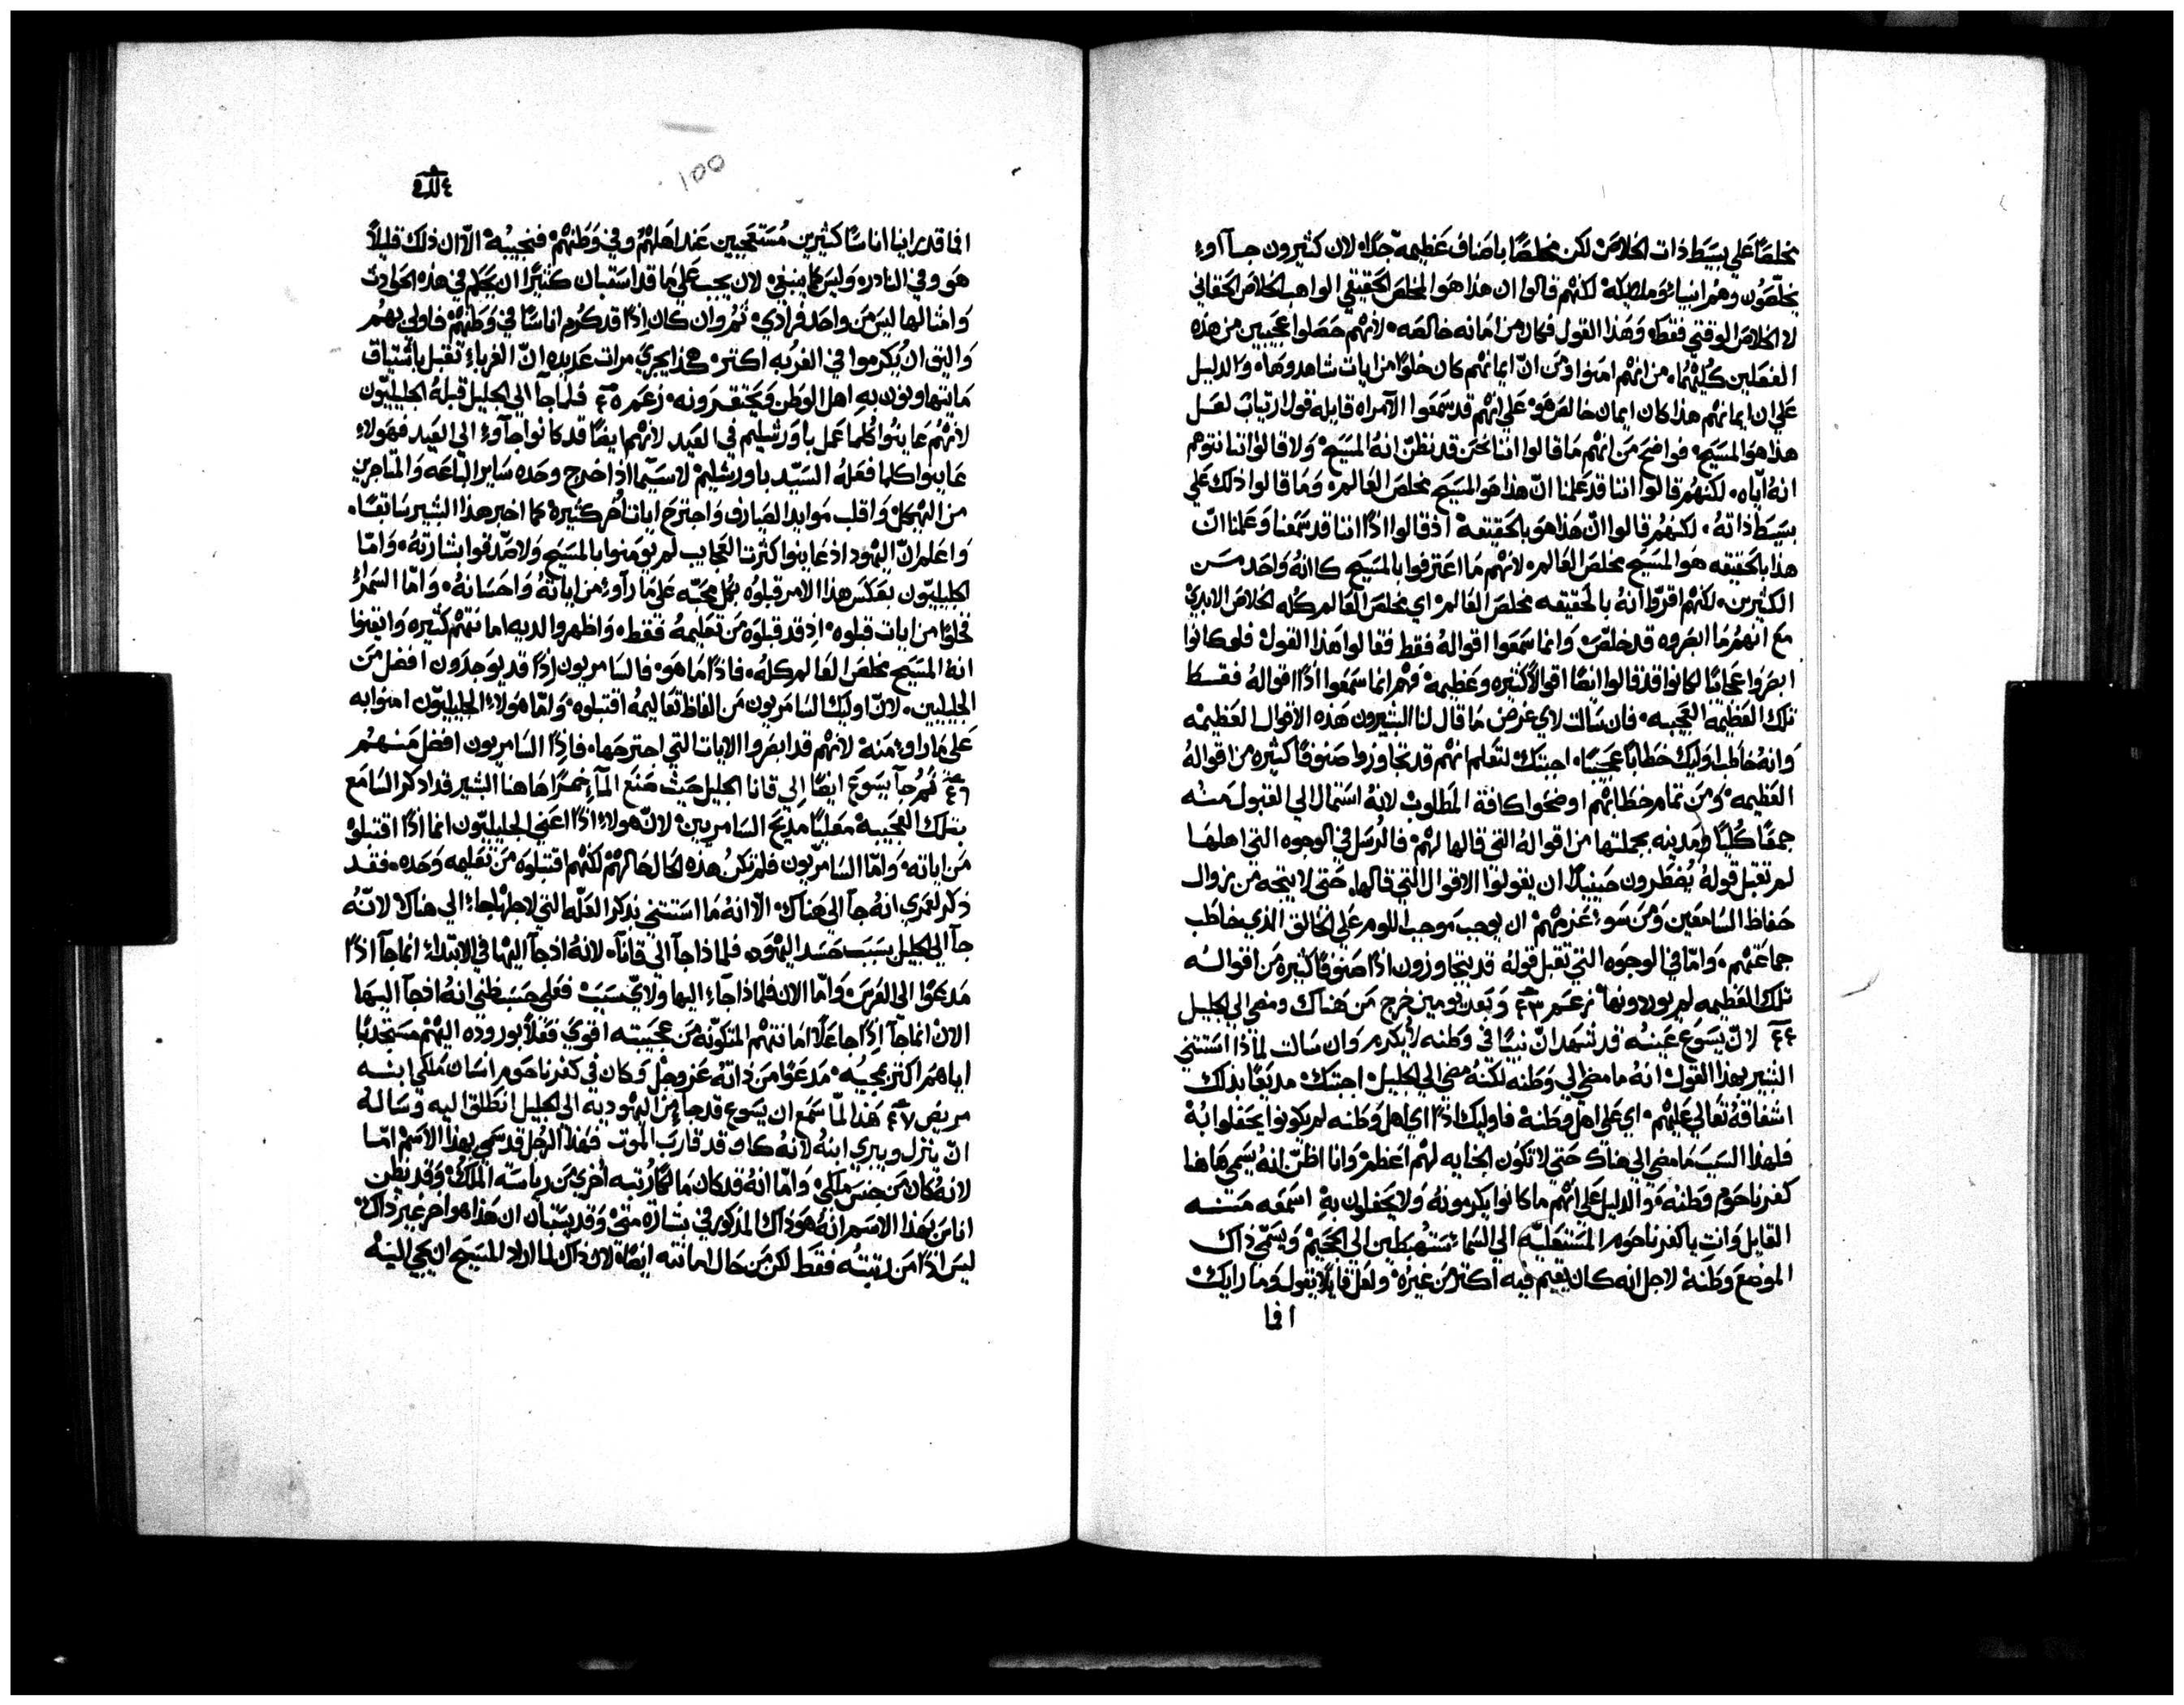 مخلصًا علي بسيط ذات الخلاص لكن مخلصًا باصناف عظيمة جدًا لان كثيرون جآاوء
يخلصون وهم انبيآء وملايكه لكنهم قالوا ان هذا هو المخلص الحقيقي الواهب الخلاص الحقاني
لا الخلاص الوقتي فقط وهذا القول فكان من امانه خالصه لانهم حصلوا عجيبين من هذه
الفعلين كليهما من انهم امنوا ومن ان ايمانهم كان خلوًا من ايات شاهدوها والدليل
علي ان ايمانهم هذا كان ايمان خالص هو علي انهم قد سمعوا الامراه قايله قول ارتياب لعل
هذا هو المسيح فواضح من انهم ما قالوا اننا نحن قد نظن انه المسيح ولا قالوا اننا نتوهم
انه اياه لكنهم قالوا اننا قد علمنا ان هذا هو المسيح مخلص العالم وما قالوا ذلك علي
بسيط ذاته لكنهم قالوا ان هذا هو بالحقيقة اذ قالوا اذًا اننا قد سمعنا وعلمنا ان
هذا بالحقيقه هو المسيح مخلص العالم لانهم ما اعترفوا بالمسيح كانه واحد من
الكثيرين لكنهم اقروا انه بالحقيقه مخلص العالم اي مخلص العالم كله الخلاص الابدي
مع انهم ما ابصروه قد خلص وانما سمعوا اقواله فقط فقالوا هذا القول فلو كانوا
ابصروا عجائبًا لكانوا قد قالوا ايضًا اقوالاً كثيره وعظيمة فهم انما سمعوا اذًا اقواله فقط
تلك العظيمة العجيبه فان سالت لاي غرض ما قال لنا البشيرون هذه الاقوال العظيمه
وانه خاطب اوليك خطابًا عجيبًا اجبتك لتعلم انهم قد تجاوزوا صنوفًا كثيره من اقواله
العظيمه ومن تمام خطابهم اوضحوا كافة المطلوب لانه استمال الي القبول منه
جمعًا كليًا ومدينه بجملتها من اقواله التي قالها لهم فالرسل في الوجوه التي اهلها
لم تقبل قوله يضطرون حينيذً ان يقولوا الاقوال التي قالها حتي لا يتجه من زوال
حفاظ السامعين ومن سوء غرضهم ان يوجب موجب اللوم علي الخالق الذي خاطب
جماعتهم واما في الوجوه التي تقبل قوله قد يتجاوزون اذًا صنوفًا كثيره من اقواله
تلك العظيمه لم يوردونها زعم ٤٣ وبعد يومين خرج من هناك ومضي الي الجليل
٤٤ لان يسوع عينه قد شهد ان نبيًا في وطنه لا يكرم وان سالت لماذا استثني
البشير بهذا القول انه ما مضي الي وطنه لكنه مضي الي الجليل اجبتك مديعًا بذلك
اشفاقه تعالي عليهم اي علي اهل وطنه فاوليك اذًا اي اهل وطنه لم يكونوا يحفلوا به
فلهذا السبب ما مضي الي هناك حتي لا تكون الجنايه لهم اعظم وانا اظن انه يسمي هاهنا
كفرناحوم وطنه والدليل علي انهم ما كانوا يكرمونه ولا يحفلون به اسمعه منه
القايل وانت يا كفرناحوم المستعليه الي السماء ستهبطين الي الجحيم ويسمي ذاك
الموضع وطنه لاجل انه كان يقيم فيه اكثر من غيره ولعل قايلاً يقول وما رايك
افما
افما قد راينا اناسًا كثيرين مستعجبين عند اهلهم وفي وطنهم فنجيبه الا ان ذلك قليلاً
هو وفي النادر وليس كما ينبغي لان يجب علي ما قد استبان كثيرًا ان يحكم في هذه الحوادث
وامثالها ليس من واحد فرادي ثم وان كان اذًا قد كرم اناسًا في وطنهم فاولي بهم
واليق ان يكرموا في الغربه اكثر هكذا يجري مرات عديده ان الغرباء تقبل باشتياق
ما يتهاونون به اهل الوطن ويحتقرونه زعم ٤٥ فلما جآ الي الجليل قبله الجليليون
لانهم عاينوا كلما عمل باورشليم في العيد لانهم ايضًا قد كانوا جآوء الي العيد فهولاء
عاينوا كلما فعله السيد باورشليم لا سيما اذ اخرج وحده ساير الباعه والتاجرين
من الهيكل واقلب موايد الصيارف واجترح ايات اخر كثيرة كما اخبر هذا البشير سابقًا
واعلم ان اليهود اذ عاينوا كثرت العجايب لم يومنوا بالمسيح ولا صدقوا بشارته واما
الجليليون بعكس هذا الامر قبلوه بكل محبه علي ما رآوء من اياته واحسانه واما السمرا
فخلوًا من ايات قبلوه اذ قد قبلوه من تعليمه فقط واظهروا لديه امانتهم كثيره وايقنوا
انه المسيح مخلص العالم كله فاذًا ما هو فالسامريون اذًا قد يوجدون افضل من
الجليليين لان اوليك السامريون من الفاظ تعاليمه اقتبلوه واما هولاء الجليليون امنوا به
علي ما راوء منه لانهم قد ابصروا الايات التي اجترحها فاذًا السامريون افضل منهم
٤٦ ثم جآ يسوع ايضًا الي قانا الجليل حيث صنع المآء خمرًا هاهنا البشير قد اذكر السامع
بتلك العجيبه معليًا مديح السامريين لان هولاء اذًا اعني الجليليون انما اذًا اقتبلوه
من اياته واما السامريون فلم تكن هذه الحال حالهم لكنهم اقتبلوه من تعليمه وحده فقد
ذكر لعمري انه جآ الي هناك الا انه ما استثني بذكر العله التي لاجلها جاء الي هناك لانه
جآ الي الجليل بسبب حسد اليهود فلماذا جآ الي قانا لانه اذ جآ اليها في الابتداء انما جآ اذًا
مدعوًا الي العرس واما الان فلماذا جاء اليها ولاي سبب فعلي حسب ظني انه اذ جآ اليها
الان انما جآ اذًا جاعلاً امانتهم المتكونه من عجيبته اقوي فعلاً بوروده اليهم مستجذبًا
اياهم اكثر بمجيه مدعوًا من ذاته عز وجل وكان في كفرناحوم انسان ملكي ابنه
مريض ٤٧ هذا لما سمع ان يسوع قد جا من اليهوديه الي الجليل انطلق اليه وساله
ان ينزل ويبري ابنه لانه كان قد قارب الموت فهذا الرجل قد سمي بهذا الاسم اما
لانه كان من جنس ملكي واما انه قد كان مالكًا رتبه اخري من رياسة الملك وقد نظن
اناس بهذا الاسم انه هو ذاك المذكور في بشارة متي وقد يستبان ان هذا هو اخر غير ذاك
ليس اذًا من رتبته فقط لكن من حال امانته ايضًا لان ذاك لما اراد المسيح ان يجي اليه